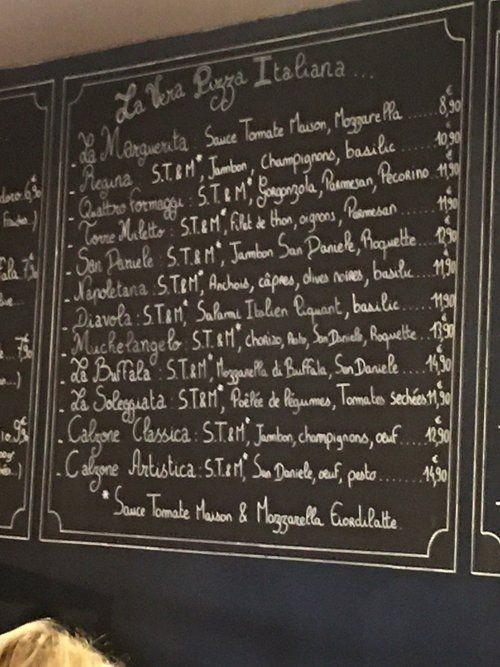 La Vera Pizza Italiana...
- La Marguerita : Sauce Tomate Maison, Mozzarella ...... 8,90€
- Regina : S.T&M*, Jambon, Champignons, basilic ...... 10,90€
- Quattro Formaggi : S.T&M*, Gorgonzola, Parmesan, Pecorino . 11,90€
- Torre Miletto : S.T&M*, Filet de thon, oignons, Parmesan ...... 11,90€
- San Daniele : S.T.&M*, Jambon San Daniele, Roquette ... 12,90€
- Napoletana : S.T&M*, Anchois, câpres, olives noires, basilic .... 11,90€
- Diavola : S.T&M*, Salami Italien Piquant, basilic ...... 11,90€
- Michelangelo : S.T&M*, chorizo, Pesto, San Daniele, Roquette ... 13,90€
- La Buffala : S.T&M*, Mozzarella di Buffala, San Daniele ..... 14,90€
- La Soleggiata : S.T&M*, Poêlée de légumes, Tomates sechées 11,90€
- Calzone Classica : S.T&M*, Jambon, champignons, oeuf ..... 12,90€
- Calzone Artistica : S.T&M*, San Daniele, oeuf, pesto ........ 14,90€
* Sauce Tomate Maison & Mozzarella Fiordilatte